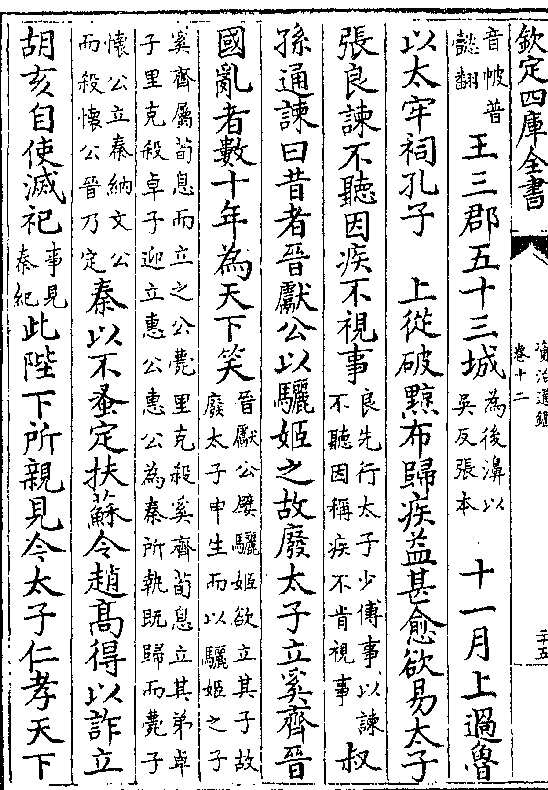 欽定四庫全書
資治通鑑
卷十二
二十五
音帔普
懿翻
王三郡五十三城
為後濞以
吳反張本
十一月上過魯
以太牢祠孔子　上從破黥布歸疾益甚愈欲易太子
張良諫不聽因疾不視事
良先行太子少傅事以諫
不聽因稱疾不肯視事
叔
孫通諫曰昔者晉獻公以驪姬之故廢太子立奚齊晉
國亂者數十年為天下笑
晉獻公嬖驪姬欲立其子故
廢太子申生而以驪姬之子
奚齊屬荀息而立之公薨里克殺奚齊荀息立其弟卓
子里克殺卓子迎立惠公惠公為秦所執既歸而薨子
懷公立秦納文公
而殺懷公晉乃定
秦以不蚤定扶蘇令趙高得以詐立
胡亥自使滅祀
事見
秦紀
此陛下所親見今太子仁孝天下